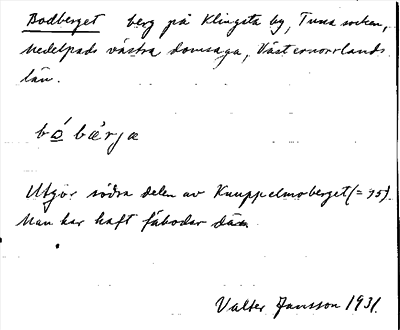 Bodberget berg på Klingsta by, Tuna socken,
Medelpads västra domsaga, Västernorrlands
län.
bo̲´ bæ̀rjæ
Utgör södra delen av Knuppelmoberget (= 95).
Man har haft fäbodar där.
Valter Jansson 1931.